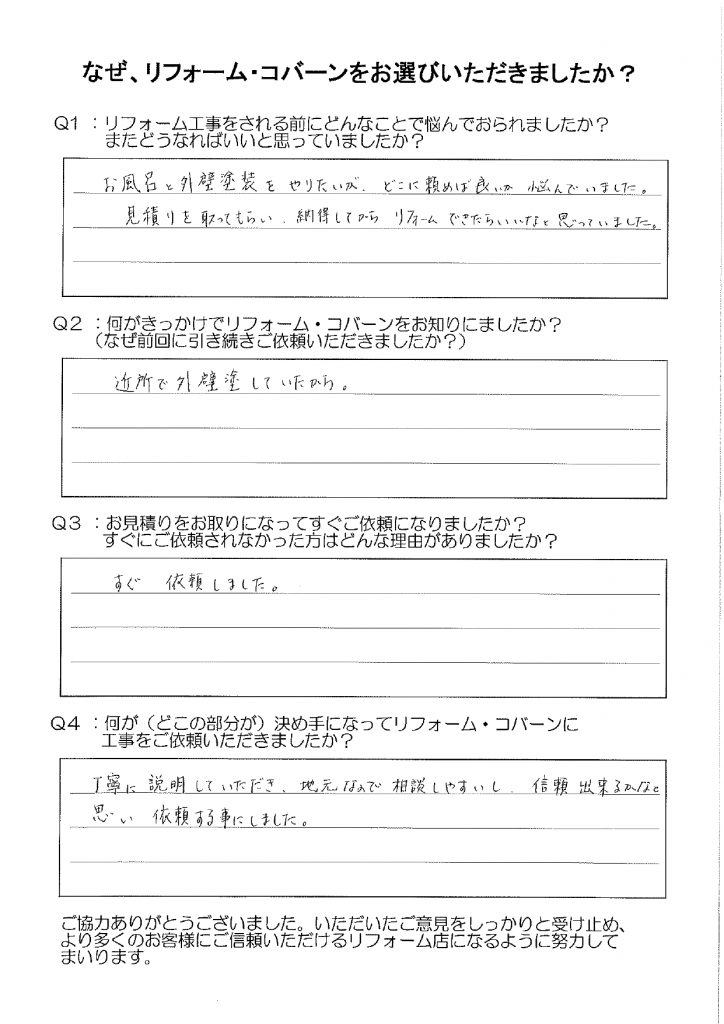 なぜ、リフォーム・コバーンをお選びいただきましたか？
Q1 ：リフォーム工事をされる前にどんなことで悩んでおられましたか？
またどうなればいいと思っていましたか？
お風呂と外壁塗装をやりたいが、どこに頼めば良いか悩んでいました。
見積りを取ってもらい、納得してからリフォームできたらいいなと思っていました。
Q2 ：何がきっかけでリフォーム・コバーンをお知りにましたか？
（なぜ前回に引き続きご依頼いただきましたか？）
近所で外壁塗していたから。
Q3 ：お見積りをお取りになってすぐご依頼になりましたか？
すぐにご依頼されなかった方はどんな理由がありましたか？
すぐ 依頼しました。
Q4 ：何が（どこの部分が）決め手になってリフォーム・コバーンに
工事をご依頼いただきましたか？
丁寧に説明していただき、地元なので相談しやすいし、信頼出来るかなと
思い 依頼する事にしました。
ご協力ありがとうございました。いただいたご意見をしっかりと受け止め、
より多くのお客様にご信頼いただけるリフォーム店になるように努力して
まいります。